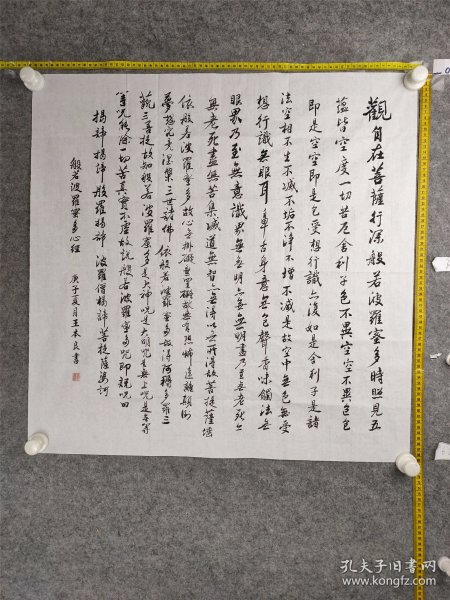 觀自在菩薩行深般若波羅蜜多時照見五
蘊皆空度一切苦厄舍利子色不異空空不異色色
即是空空即是色受想行識亦復如是舍利子是諸
法空相不生不滅不垢不淨不增不減是故空中無色無受
想行識無眼耳鼻舌身意無色聲香味觸法無
眼界乃至無意識界無無明亦無無明盡乃至無老死亦
無老死盡無苦集滅道無智亦無得以無所得故菩提薩埵
依般若波羅蜜多故心無掛礙無罣礙故無有恐怖遠離顛倒
夢想究竟涅槃三世諸佛依般若波羅蜜多故得阿耨多羅三
藐三菩提故知般若波羅蜜多是大神咒是大明咒是無上咒是無等
等咒能除一切苦真實不虛故說般若波羅蜜多咒即說咒曰
揭諦揭諦般羅揭諦 波羅僧揭諦菩提薩婆訶
般若波羅蜜多心經 庚子夏月王本良書
孔夫子旧书网
www.kongfz.com